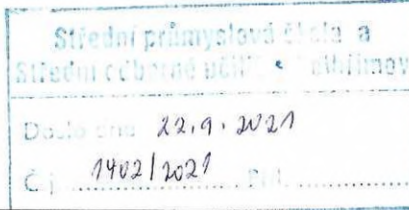 Střední průmyslová škola a
Střední odborné
Došlo dne 22.9.2021
Č.j. 1402/2021